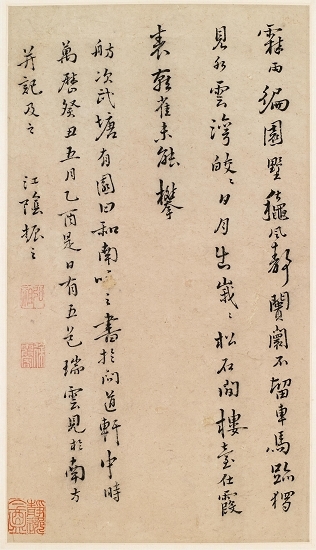 霖雨編園墅風靜闠闤不留車馬跡獨
見水雲灣皎々日月出峩々松石間樓臺仕霞
表雀未能攀
舫次武塘有園曰和南之書於問道軒中時
萬曆癸丑五月乙酉是日有五色瑞雲見於南方
并記及之 江陰振之